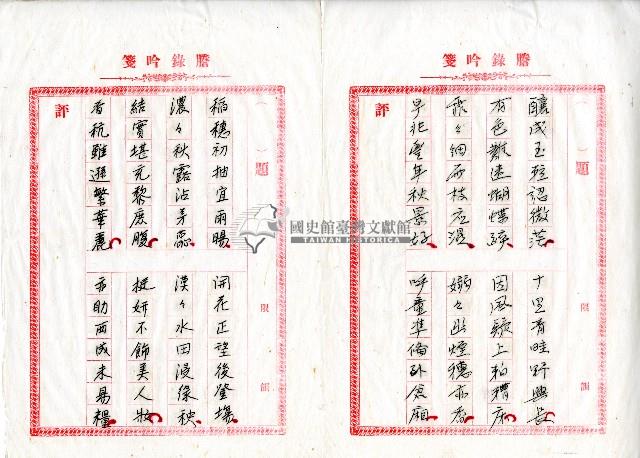 謄錄吟箋
（　）題
限　韻
釀成玉粒認微茫
十里青畦野興長
有色難迷蝴蝶
因風疑上糟床
霏々細雨枝應濕
嫋々煙穗亦香
早兆豐年秋景好
呼童準備倉廂
評
謄錄吟箋
（　）題
限　韻
稻穗初抽宜雨暘
開花正望後登場
濃々秋露沾芳蕊
漠々水田漫綠秧
結實堪充黎庶腹
挺妍不飾美人妝
香秔雖遜繁華麗
亦助西成未易糧
評
國史館臺灣文獻館
TAIWAN HISTORICA